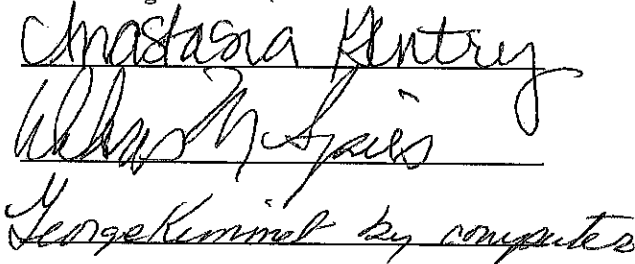 Anastasia Gentry
M Spies
George Kimmet by computer